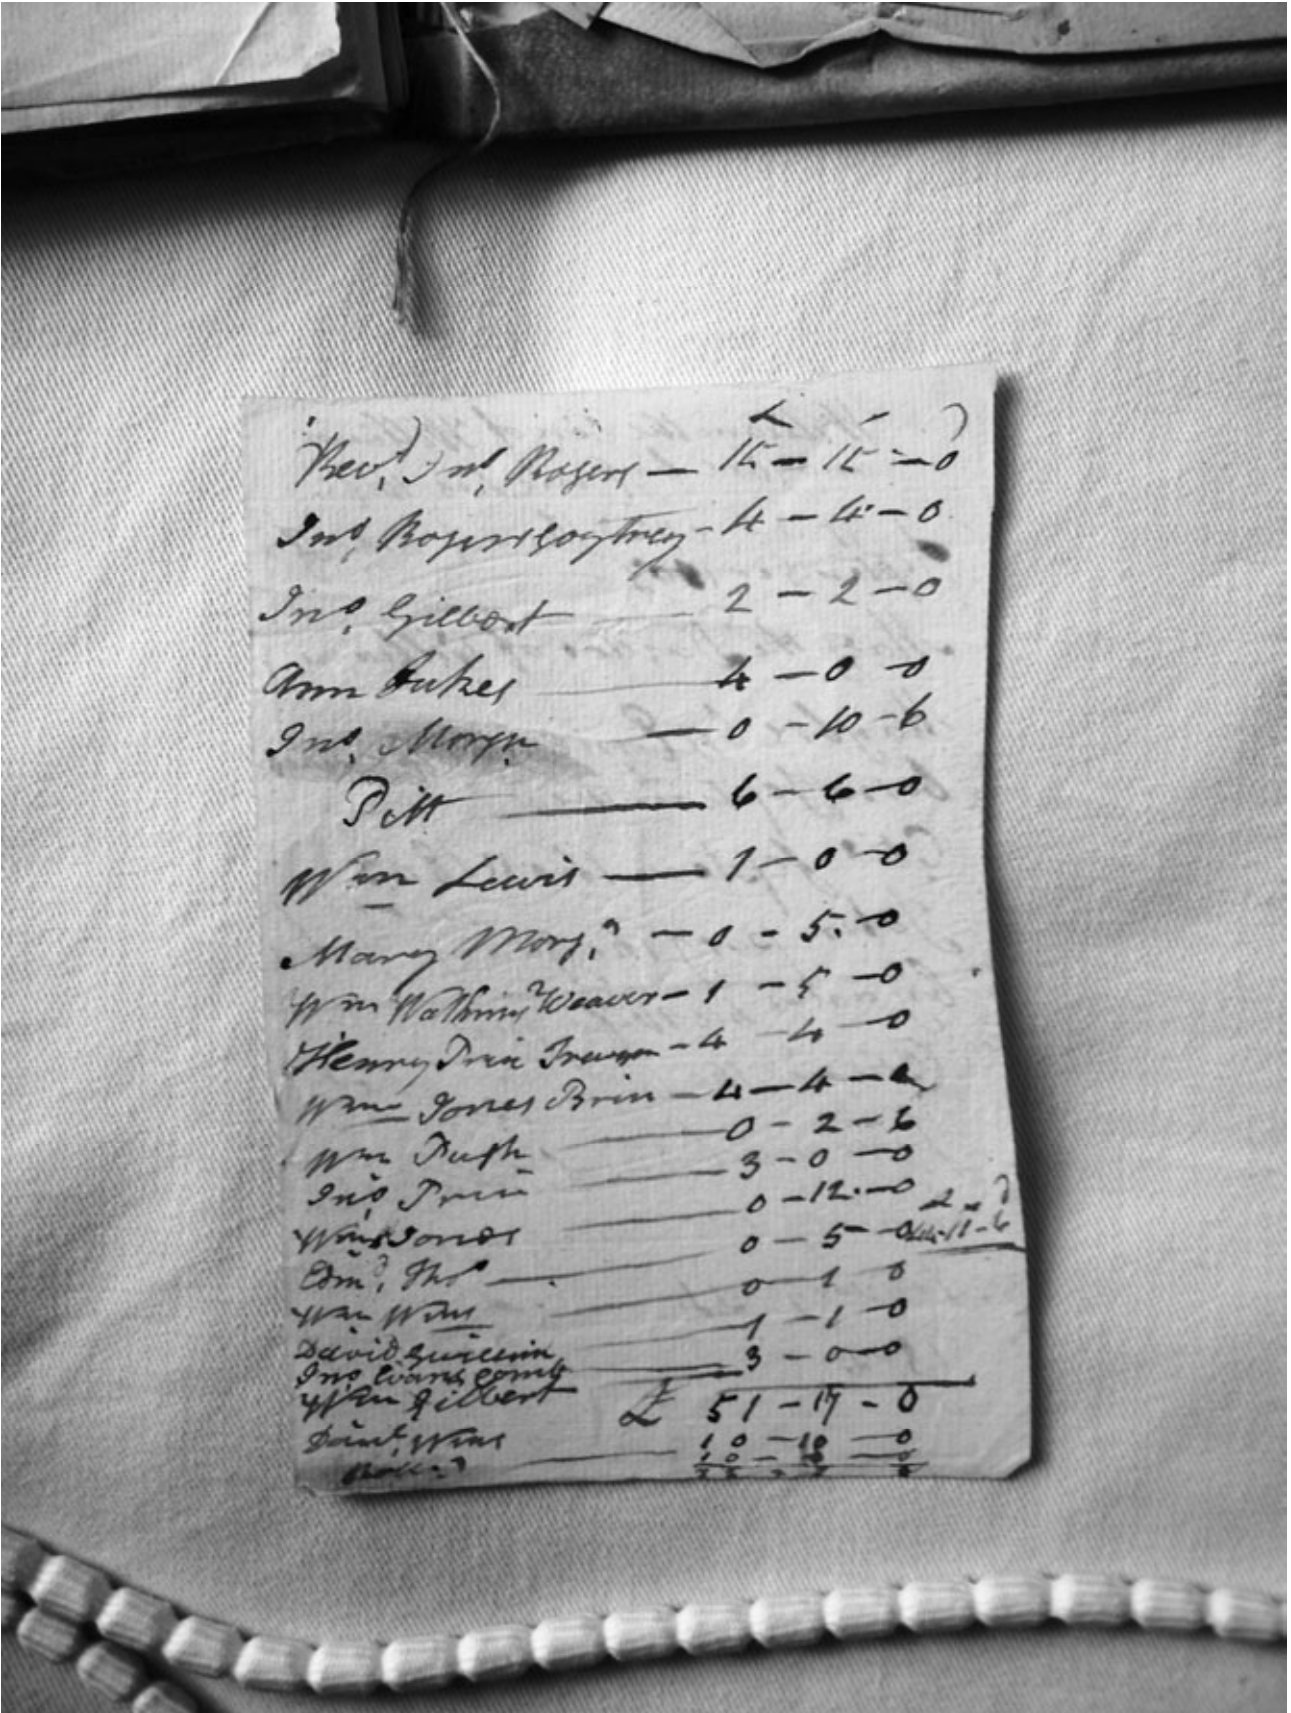 £ s d
Revd. Jno. Rogers — 15 — 15 — 0
Jno. Rogers - 4 — 4 — 0
Jno. Gilbert 2 — 2 — 0
Ann 4 — 0 — 0
Jno. Morgn — 0 — 10 - 6
Pitt 6 — 6 — 0
Wm Lewis — 1 — 0 — 0
Mary Morgn — 0 - 5. — 0
Wm Watkins Weaver — 1 — 5 — 0
Henry Price - 4 — 4 — 0
Wm Jones — 4 — 4 — 0
Wm Pugh 0 - 2 - 6
Jno. Price 3 - 0 - 0
Wm Jones 0 - 12 - 0
Edmd. Thos — 0 - 5 - 0
Wm Wms 0 - 1 0
David 1 - 1 - 0
Jno Evans 3 - 0 - 0
Wm Gilbert
£ 51 - 17 - 0
Danl. Wms 10 - 10 - 0